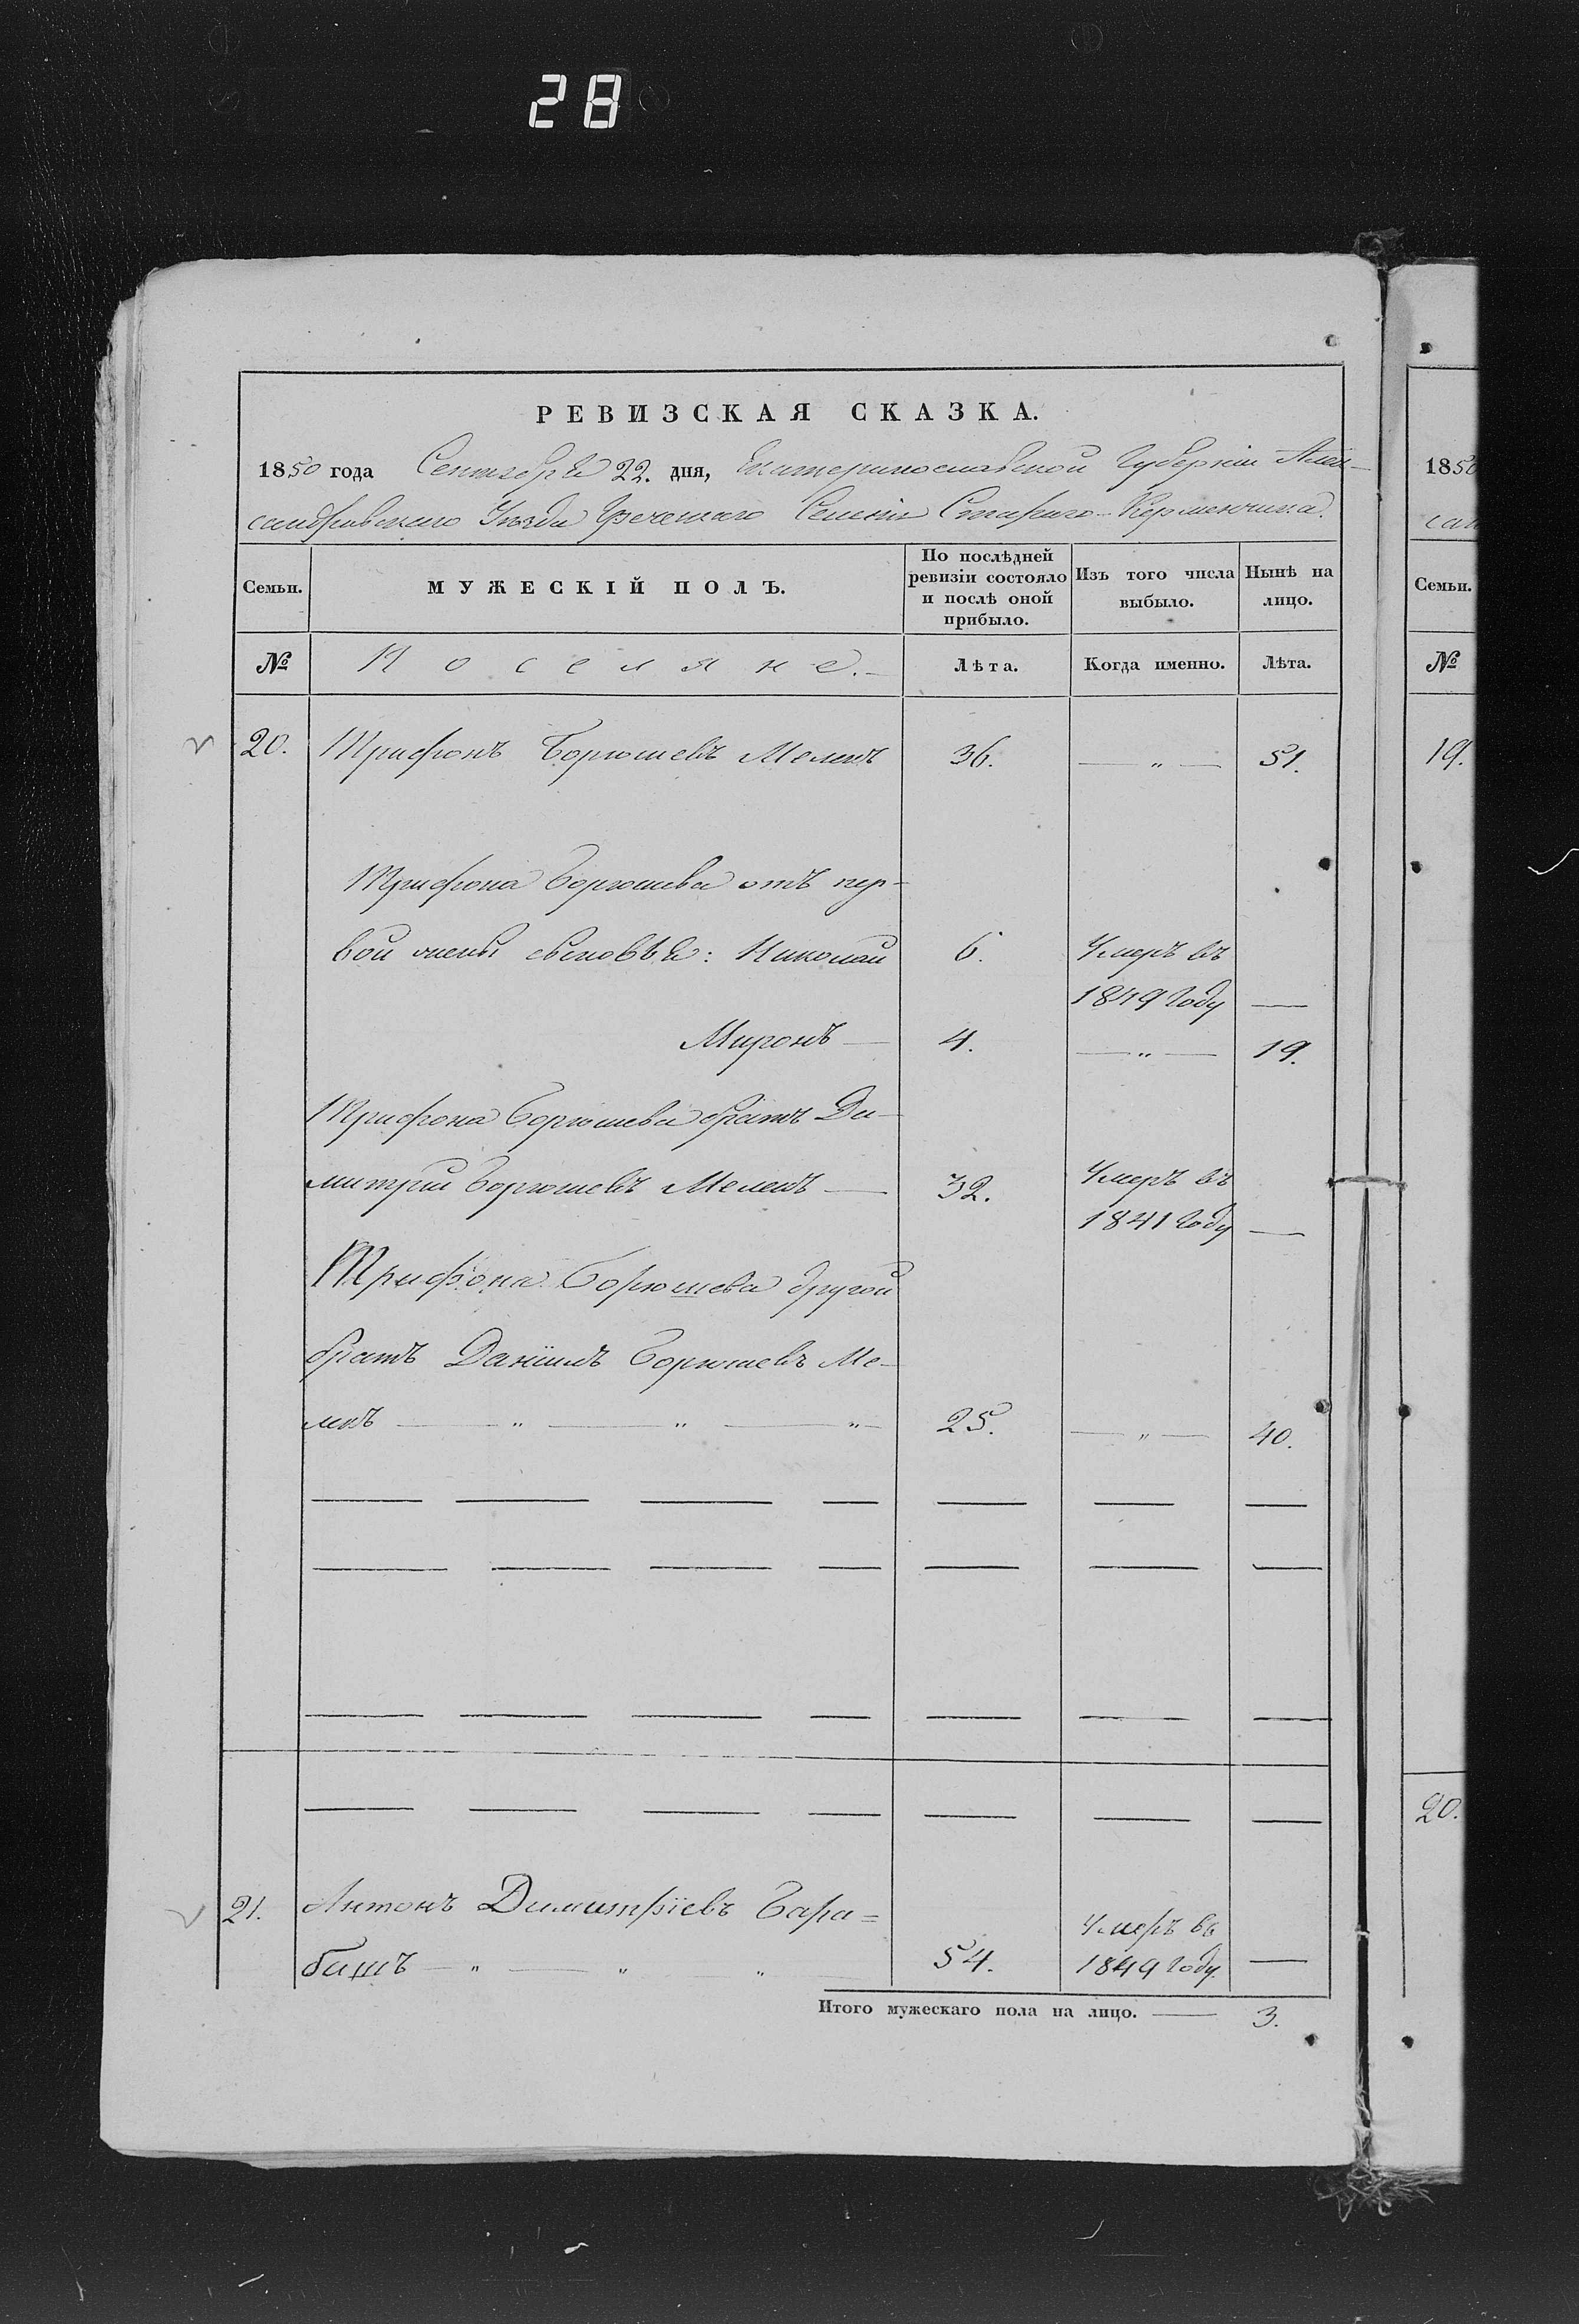 28
РЕВИЗСКАЯ СКАЗКА.
1850 года Сентября 22. дня, Екатеринославской Губерніи Алек-
сандровскаго Уѣзда Греческаго Селенія Стараго-Керменчика.
Семьи.
МУЖЕСКІЙ ПОЛЪ.
По послѣдней ревизіи состояло и послѣ оной прибыло.
Изъ того числа выбыло.
Нынѣ на лицо.
№ Поселяне. Лѣта. Когда именно. Лѣта.
20. Трифонъ Борюшевъ Мелекъ 36. — „ — 51.
Трифона Борюшева отъ пер-
вой жены сыновья: Николай 6. Умеръ въ
1849 году —
Миронъ — 4. — „ — 19.
Трифона Борюшева братъ Ди-
митрій Борюшевъ Мелекъ — 32. Умеръ въ
1841 году —
Трифона Борюшева другой
братъ Даніилъ Борюшевъ Ме-
лекъ — „ — „ — „ — 25. — „ — 40.
21. Антонъ Димитріевъ Бара=
башъ — „ — „ „ 54. Умеръ въ
1849 году. —
Итого мужескаго пола на лицо. — 3.
1850
сан
Семьи.
№
19.
20.